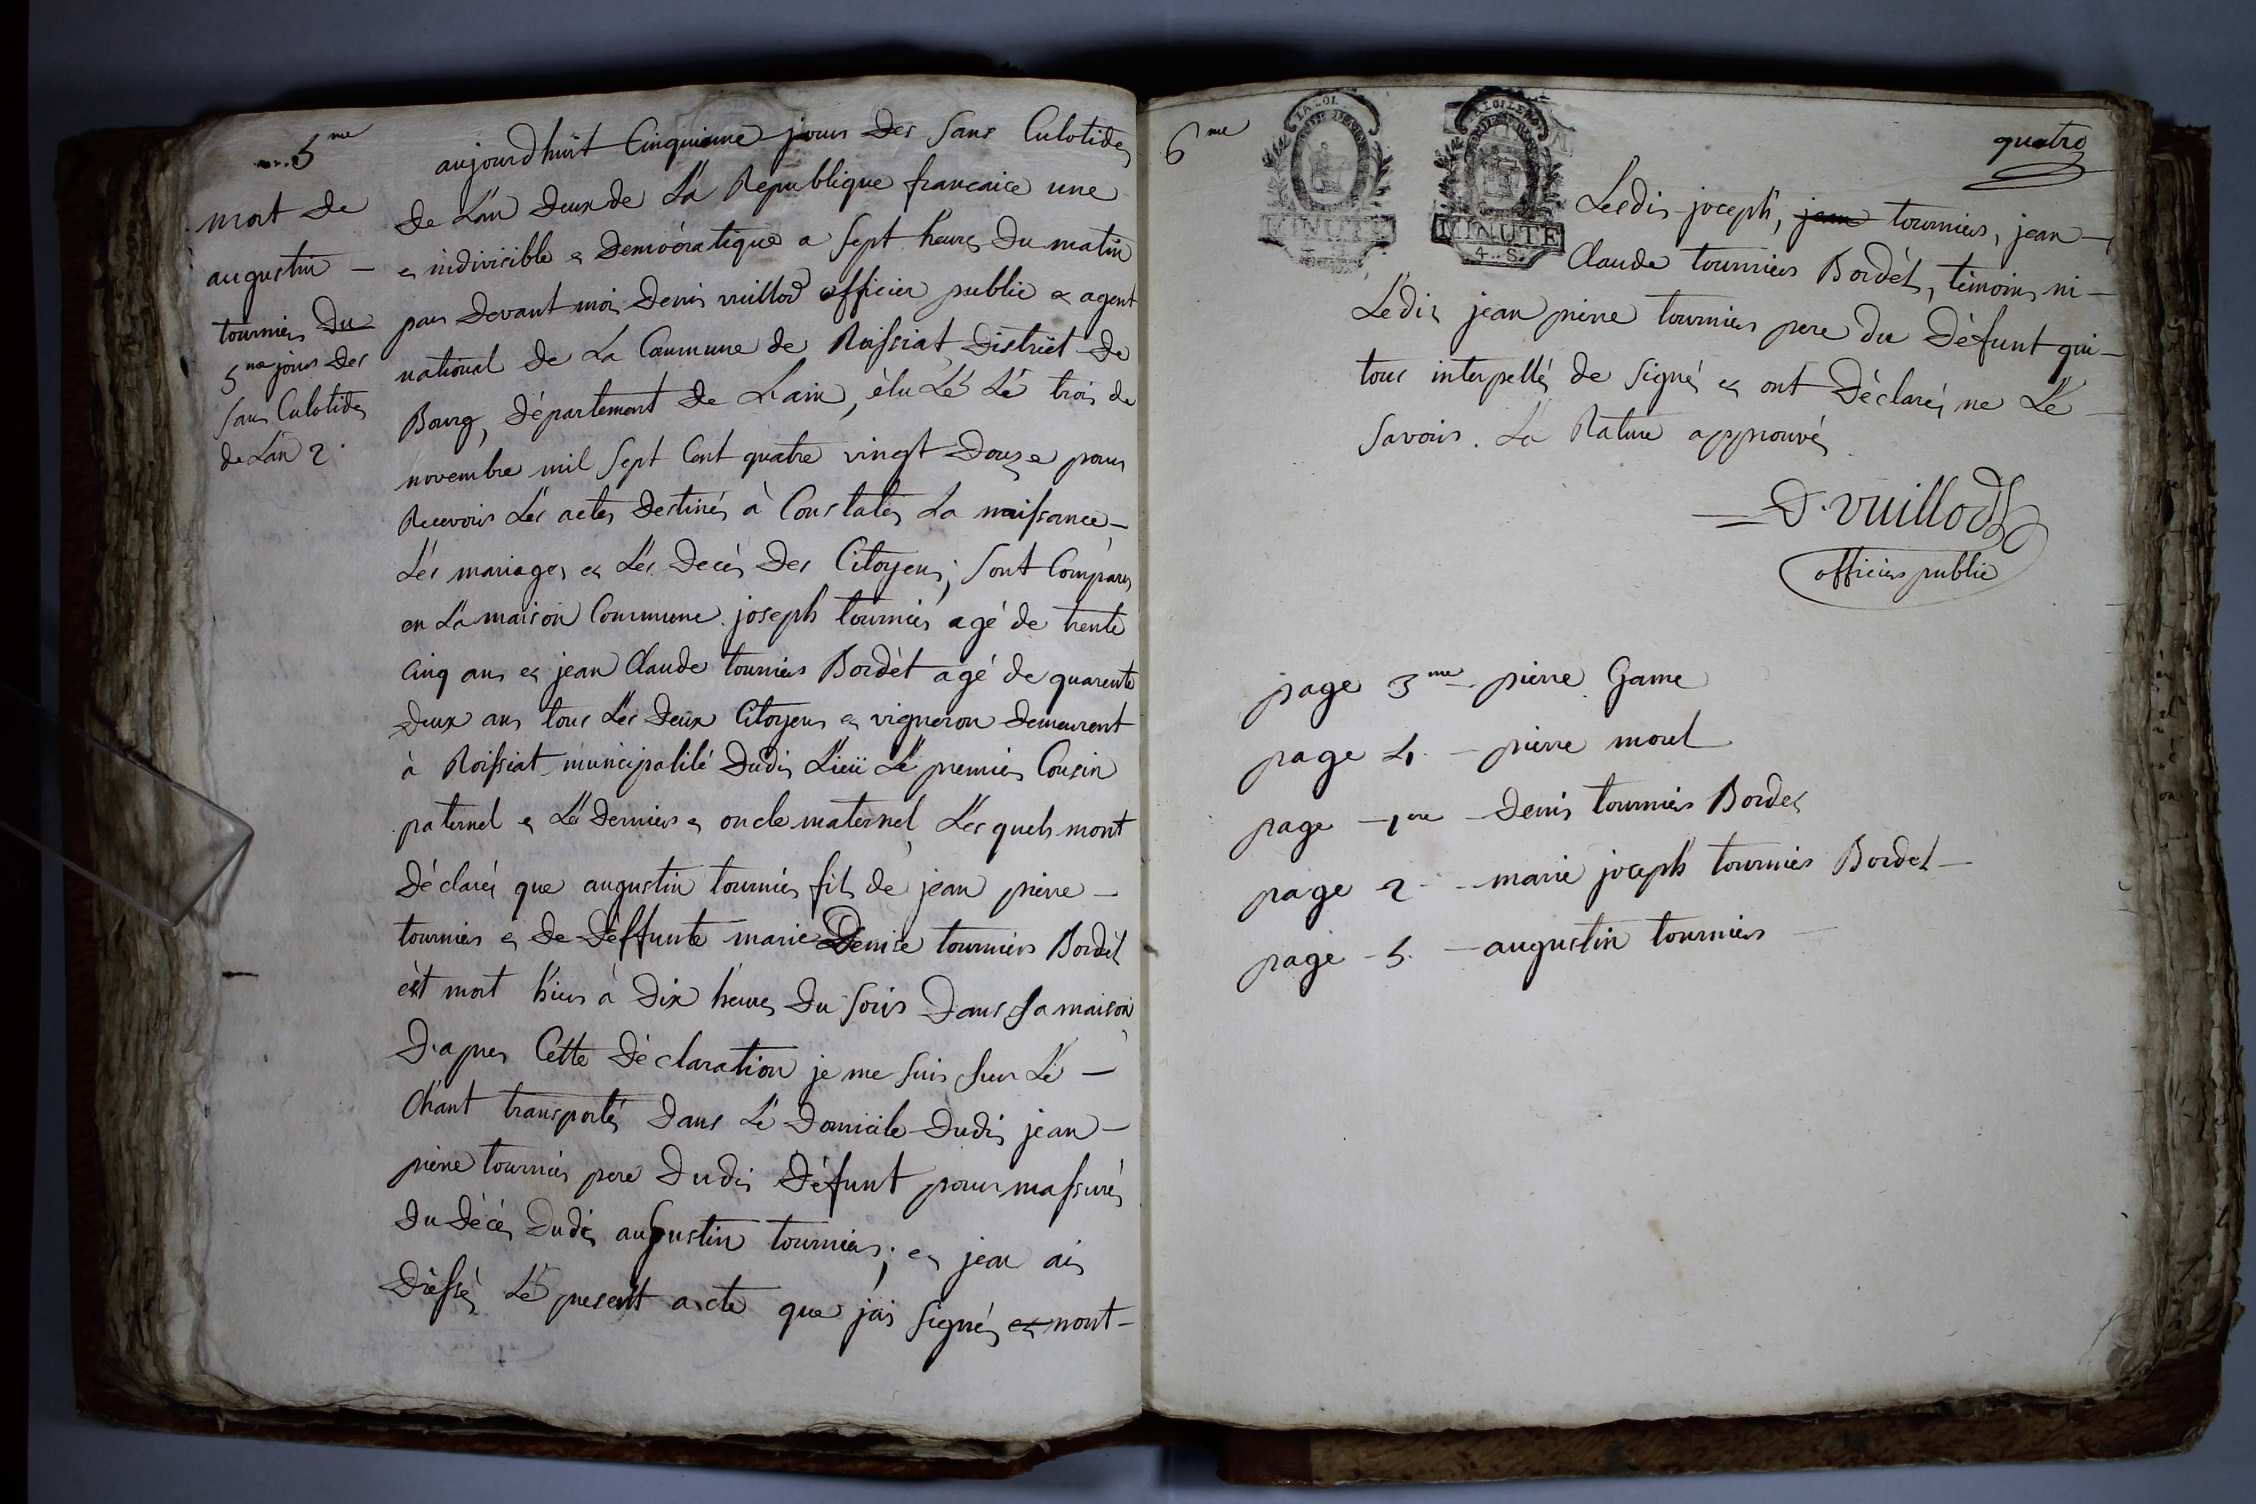 5me
mort de
augustin —
tournier du
5me jour des
sans Culotides
de L'an 2.
aujourd'huit Cinquieme jour des sans Culotides
de L'an deux de La Republique francaice une
et indivicible et Democratique a sept heures du matin
par devant moi denis vuillod officier public et agent
national de La Commune de Roissiat District de
Bourg, département de L'ain, élu Lé Lé trois de
novembre mil sept Cent quatre vingt douze pour
Recevoir Lés actes destinés à Constater La naissance —
Lés mariages et Lés decès des Citoyens; sont Comparus
en La maison Commune joseph tournier agé de trente
Cinq ans et jean Claude tournier Bordèt agé de quarente
deux ans tous Lés deux Citoyens et vigneron demeurent
à Roissiat municipalité dudit Lieu Lé premier Cousin
paternel et Lé dernier et oncle maternel, Lésquels mont
déclarés que augustin tournier fils de jean pierre —
tournier et de deffunte marie Denise tournier Bordèt
èst mort hier à dix heures du soir dans sa maison
d'apres Cette déclaration je me suis sur Lé —
Chant transportés dans Lé domicile dudit jean —
pierre tournier pere dudit défunt pour massurés
du décés dudit augustin tournier; et jean ais
dréssés Lé present acte que j'ais signés et nont —
6me
LA LOI
MINUTE
MINUTE
4..S.
quatre
Lesdit joceph, jean tournier, jean —
Claude tournier Bordèt, témoins ni —
Ledit jean pierre tournier pere du défunt qui —
tous interpellés de signés et ont déclarés ne Lé —
savoir. La Rature approuvés
D. vuillod
officier public
page 3me pierre Game
page 4. — pierre morel
page — 1ere — denis tournier Bordet
page 2 — marie joceph tournier Bordet —
page — 5. — augustin tournier —